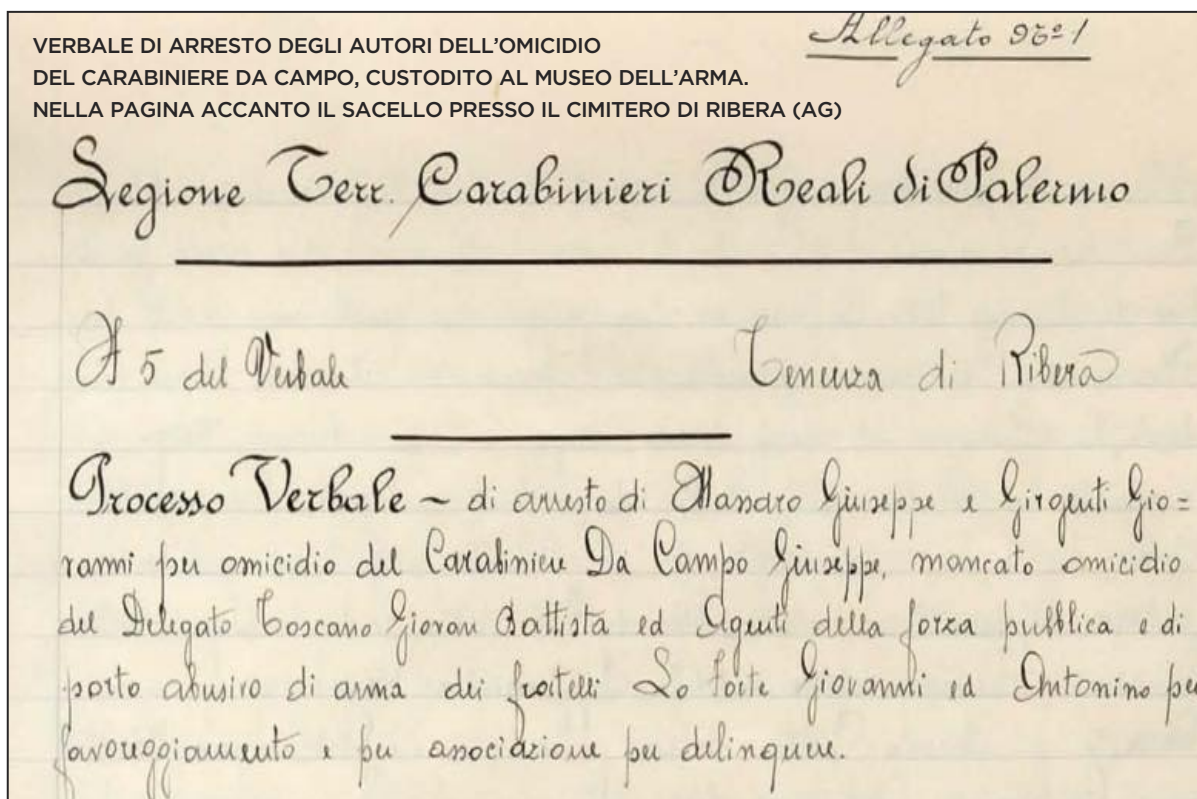 Allegato Nº 1
VERBALE DI ARRESTO DEGLI AUTORI DELL’OMICIDIO
DEL CARABINIERE DA CAMPO, CUSTODITO AL MUSEO DELL’ARMA.
NELLA PAGINA ACCANTO IL SACELLO PRESSO IL CIMITERO DI RIBERA (AG)
Legione Terr. Carabinieri Reali di Palermo
5 del Verbale
Tenenza di Ribera
Processo Verbale ~ di arresto di Mandro Giuseppe e Girgenti Gio=
vanni per omicidio del Carabiniere Da Campo Giuseppe, mancato omicidio
del Delegato Toscano Giovan Battista ed Agenti della forza pubblica e di
porto abusivo di arma dei fratelli Lo Forte Giovanni ed Antonino per
favoreggiamento e per associazione per delinquere.